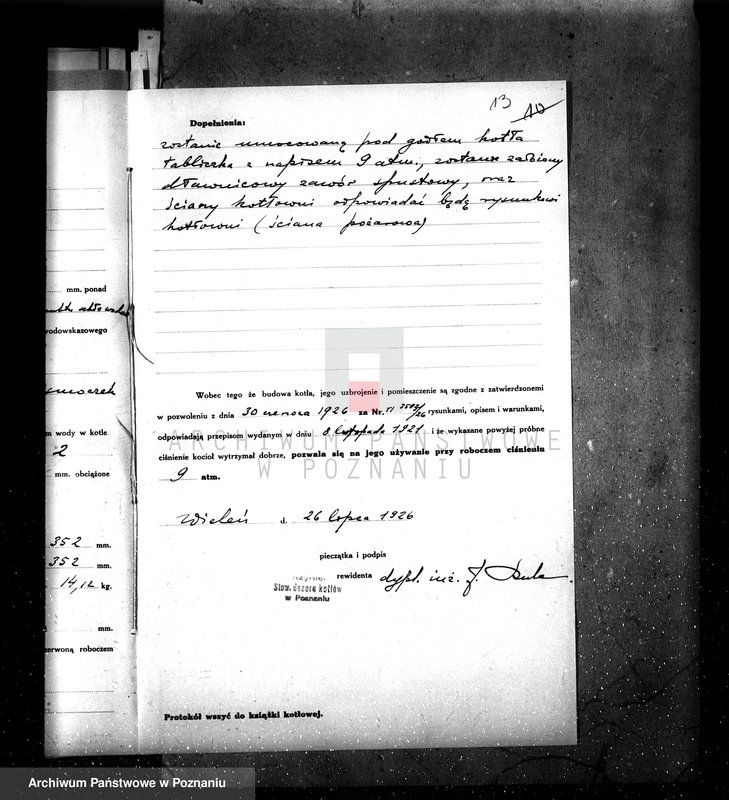 13 10
Dopełnienia:
zostanie umocowaną pod godłem kotła
tabliczka z napisem 9 atm., zostanie założony
dławnicowy zawór spustowy, oraz
ściany kotłowni odpowiadać będą rysunkowi
kotłowni (ściana pożarowa)
mm. ponad
wodowskazowego
m wody w kotle
2
mm. obciążone
352 mm.
352 mm.
14,12 kg.
mm.
czerwoną roboczem
Wobec tego że budowa kotła, jego uzbrojenie i pomieszczenie są zgodne z zatwierdzonemi
w pozwoleniu z dnia 30 czerwca 1926 za Nr. VI /26 rysunkami, opisem i warunkami,
odpowiadają przepisom wydanym w dniu 8 listopada 1921 i że wykazane powyżej próbne
ciśnienie kocioł wytrzymał dobrze, pozwala się na jego używanie przy roboczem ciśnieniu
9 atm.
ARCHIWUM PAŃSTWOWE
W POZNANIU
Wieleń d. 26 lipca 1926
pieczątka i podpis
rewidenta dypl. inż. J.
Inżynier
Stow. dozoru kotłów
w Poznaniu
Protokół wszyć do książki kotłowej.
Archiwum Państwowe w Poznaniu